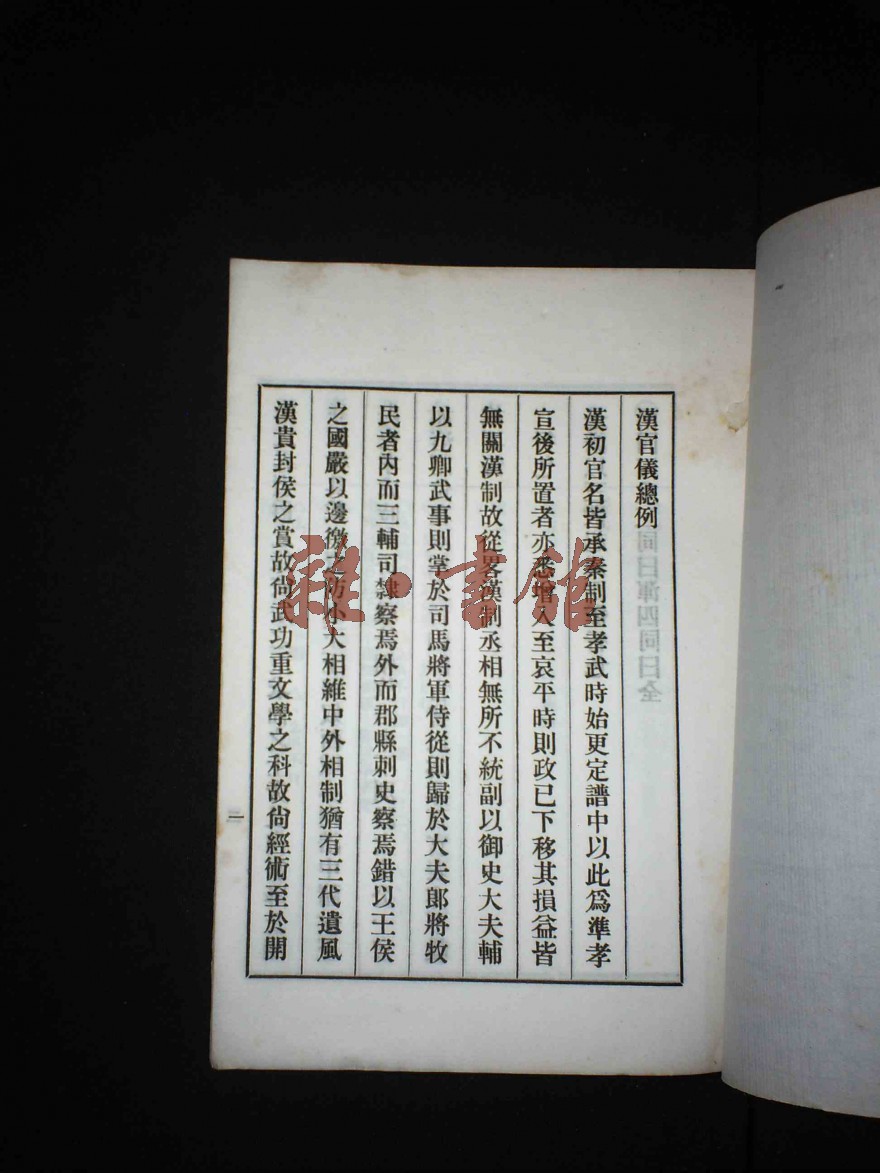 漢官儀總例
漢初官名皆承秦制至孝武時始更定譜中以此爲準孝
宣後所置者亦悉增入至哀平時則政已下移其損益皆
無關漢制故從畧漢制丞相無所不統副以御史大夫輔
以九卿武事則掌於司馬將軍侍從則歸於大夫郞將牧
民者內而三輔司隸察焉外而郡縣刺史察焉錯以王侯
之國嚴以邊徼之防小大相維中外相制猶有三代遺風
漢貴封侯之賞故尙武功重文學之科故尙經術至於開
一
雜·書館